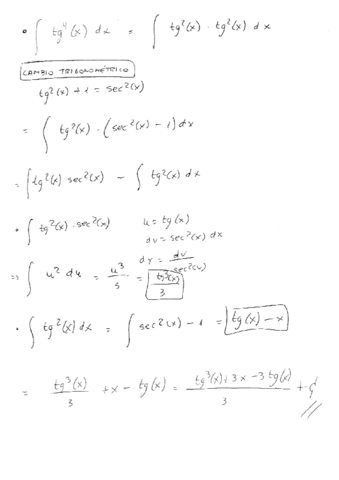 • ∫ tg⁴(x) dx = ∫ tg²(x) · tg²(x) dx
CAMBIO TRIGONOMÉTRICO
tg²(x) + 1 = sec²(x)
= ∫ tg²(x) · (sec²(x) − 1) dx
= ∫ tg²(x) sec²(x) − ∫ tg²(x) dx
• ∫ tg²(x) · sec²(x) u = tg(x)
du = sec²(x) dx
dx = du / sec²(x)
⇒ ∫ u² du = u³/3 = tg³(x)/3
• ∫ tg²(x) dx = ∫ sec²(x) − 1 = tg(x) − x
= tg³(x)/3 + x − tg(x) = (tg³(x) + 3x − 3tg(x))/3 + C